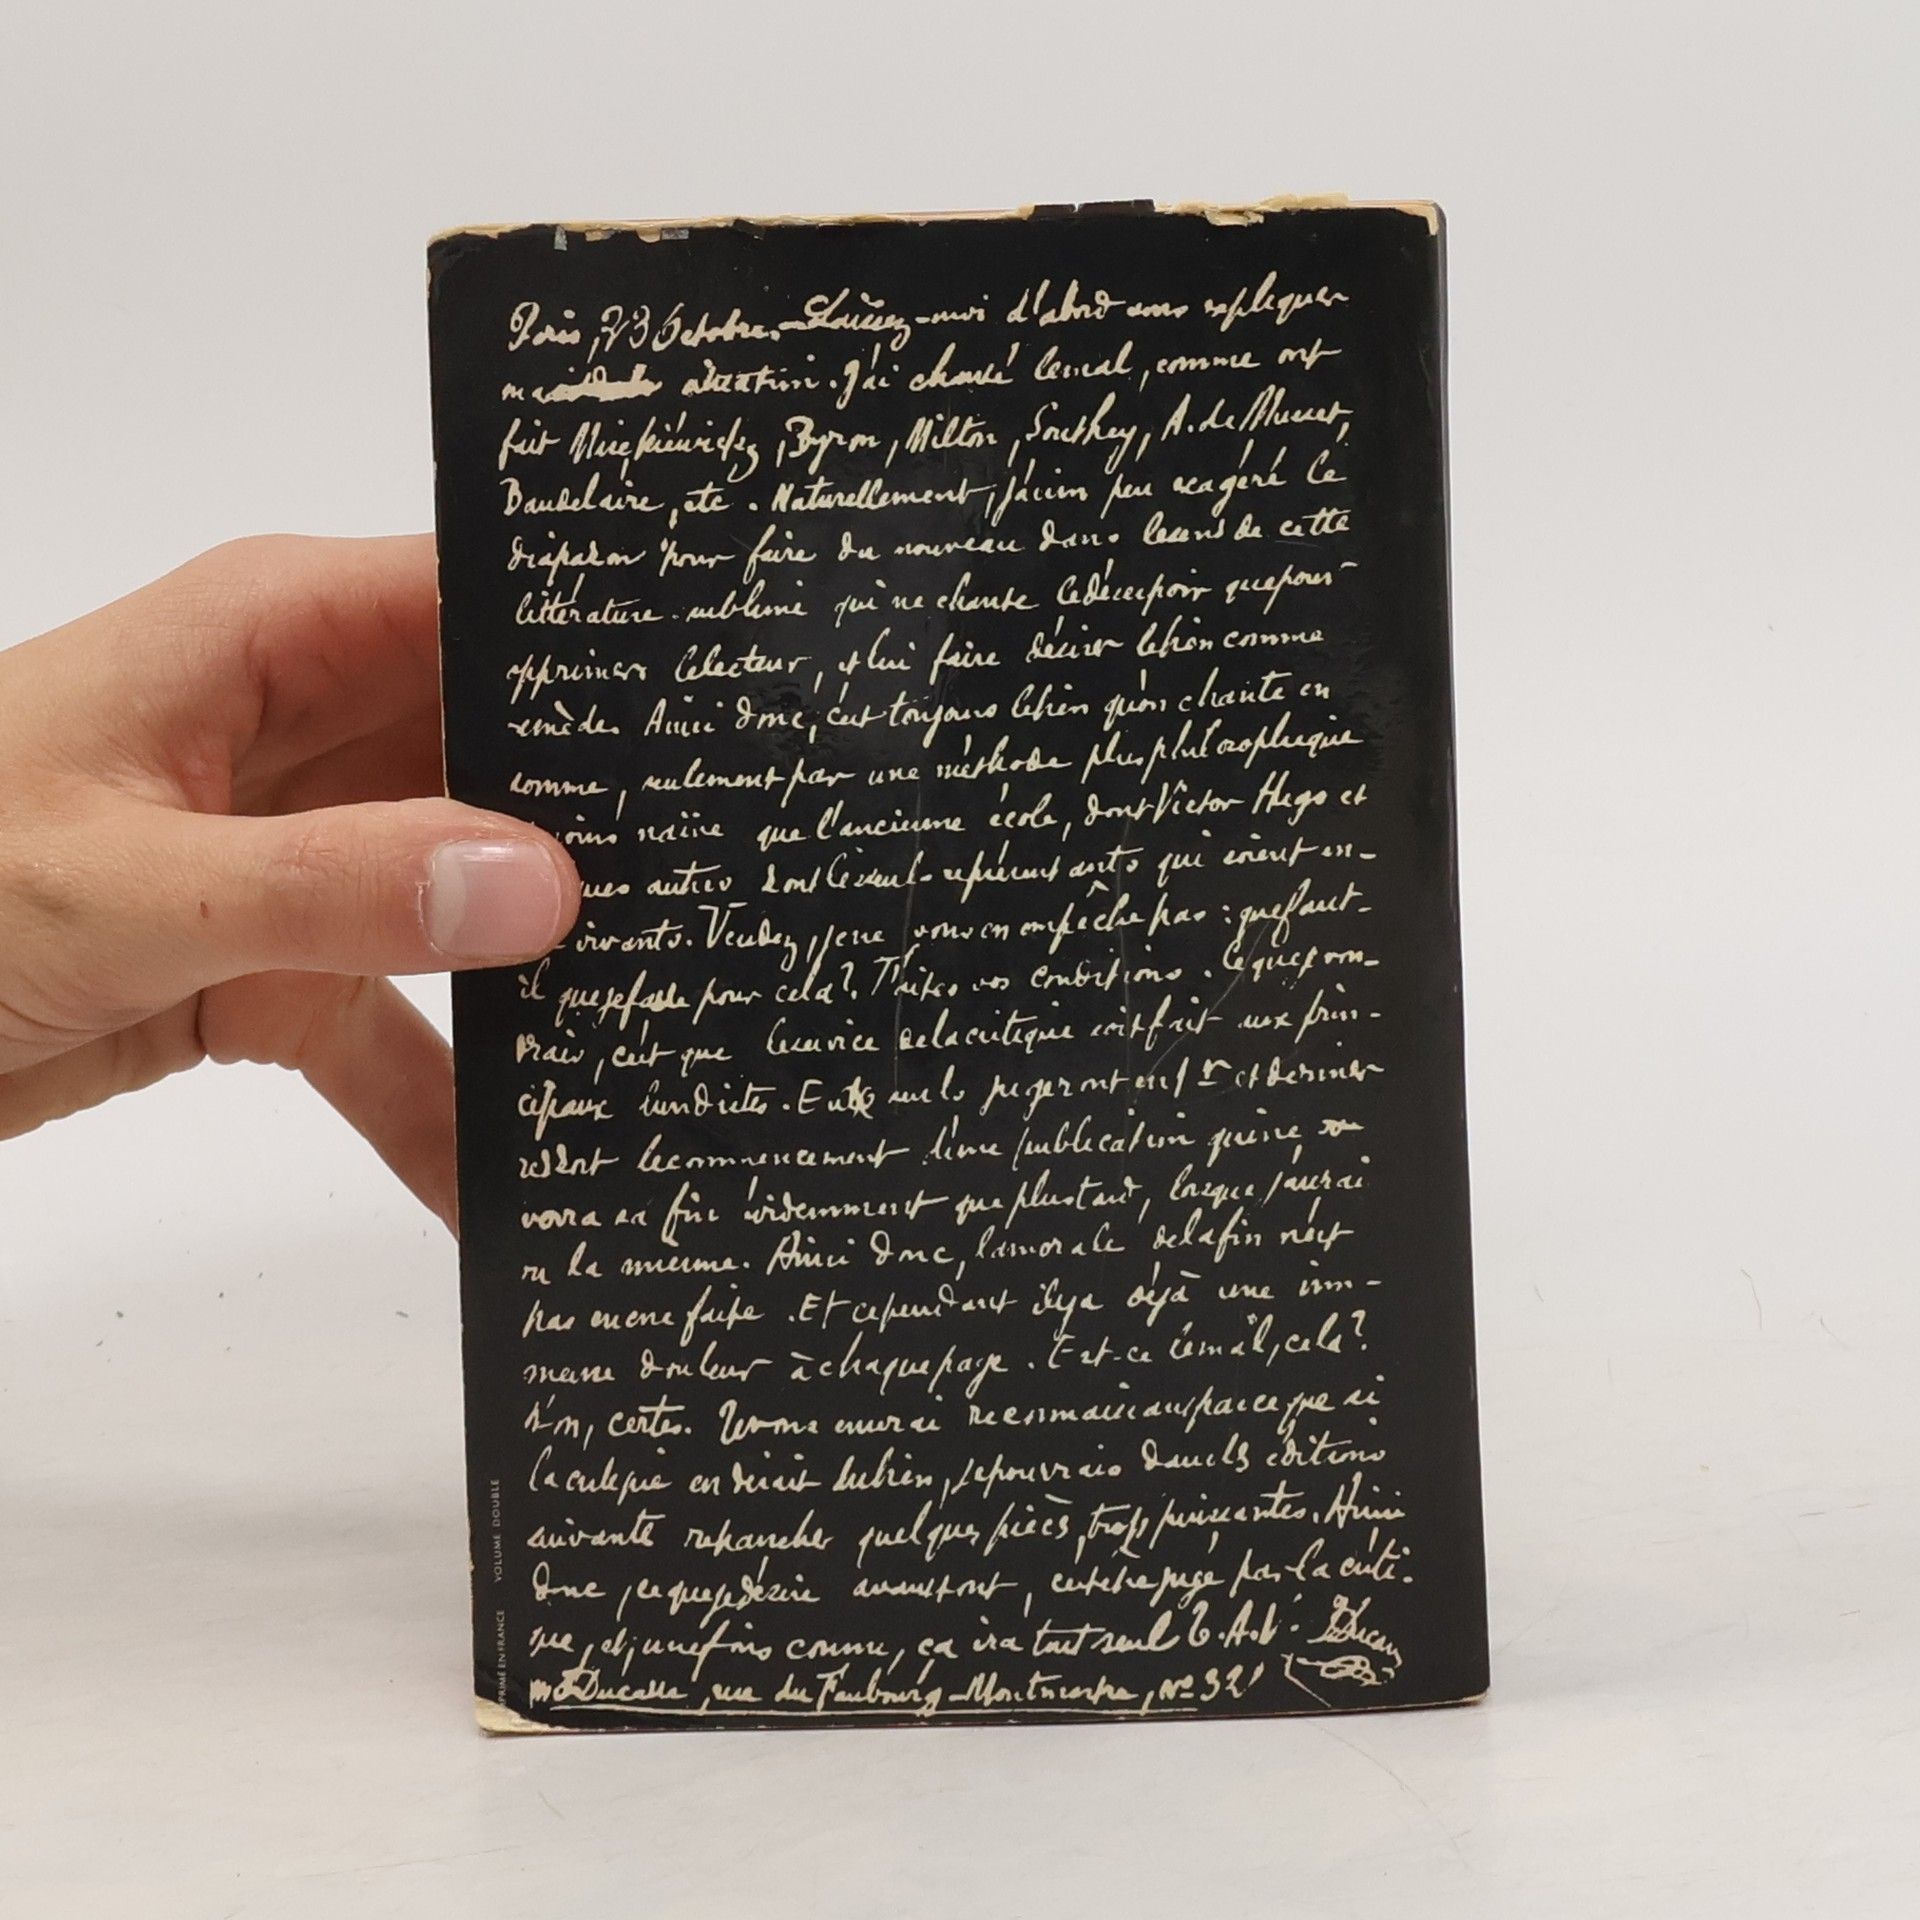 Paris, 23 Octobre. — Laissez-moi d'abord vous expliquer
ma situation. J'ai chanté le mal, comme ont
fait Mickiéwickz, Byron, Milton, Southey, A. de Musset,
Baudelaire, etc. Naturellement, j'ai un peu exagéré le
diapason pour faire du nouveau dans le sens de cette
littérature sublime qui ne chante le désespoir que pour
opprimer le lecteur, et lui faire désirer le bien comme
remède. Ainsi donc, c'est toujours le bien qu'on chante en
somme, seulement par une méthode plus philosophique
moins naïve que l'ancienne école, dont Victor Hugo et
ques autres sont les seuls représentants qui soient en-
vivants. Vendez, je ne vous en empêche pas : que faut-
il que je fasse pour cela? Faites vos conditions. Ce que je vou-
drais, c'est que le service de la critique soit fait aux prin-
cipaux lundistes. Eux seuls jugeront en 1er et dernier
ressort le commencement d'une publication qui ne
verra sa fin évidemment que plus tard, lorsque j'aurai
vu la mienne. Ainsi donc, la morale de la fin n'est
pas encore faite. Et cependant il y a déjà une im-
mense douleur à chaque page. Est-ce le mal, cela?
Non, certes. Je vous en serai reconnaissant parce que si
la critique en disait du bien, je pourrais dans les éditions
suivantes retrancher quelques pièces, trop puissantes. Ainsi
donc, ce que je désire avant tout, c'est être jugé par la criti-
que, et, une fois connu, ça ira tout seul. T. A. V. I. Ducasse
M. I. Ducasse, rue du Faubourg-Montmartre, n° 32
IMPRIMÉ EN FRANCE VOLUME DOUBLE